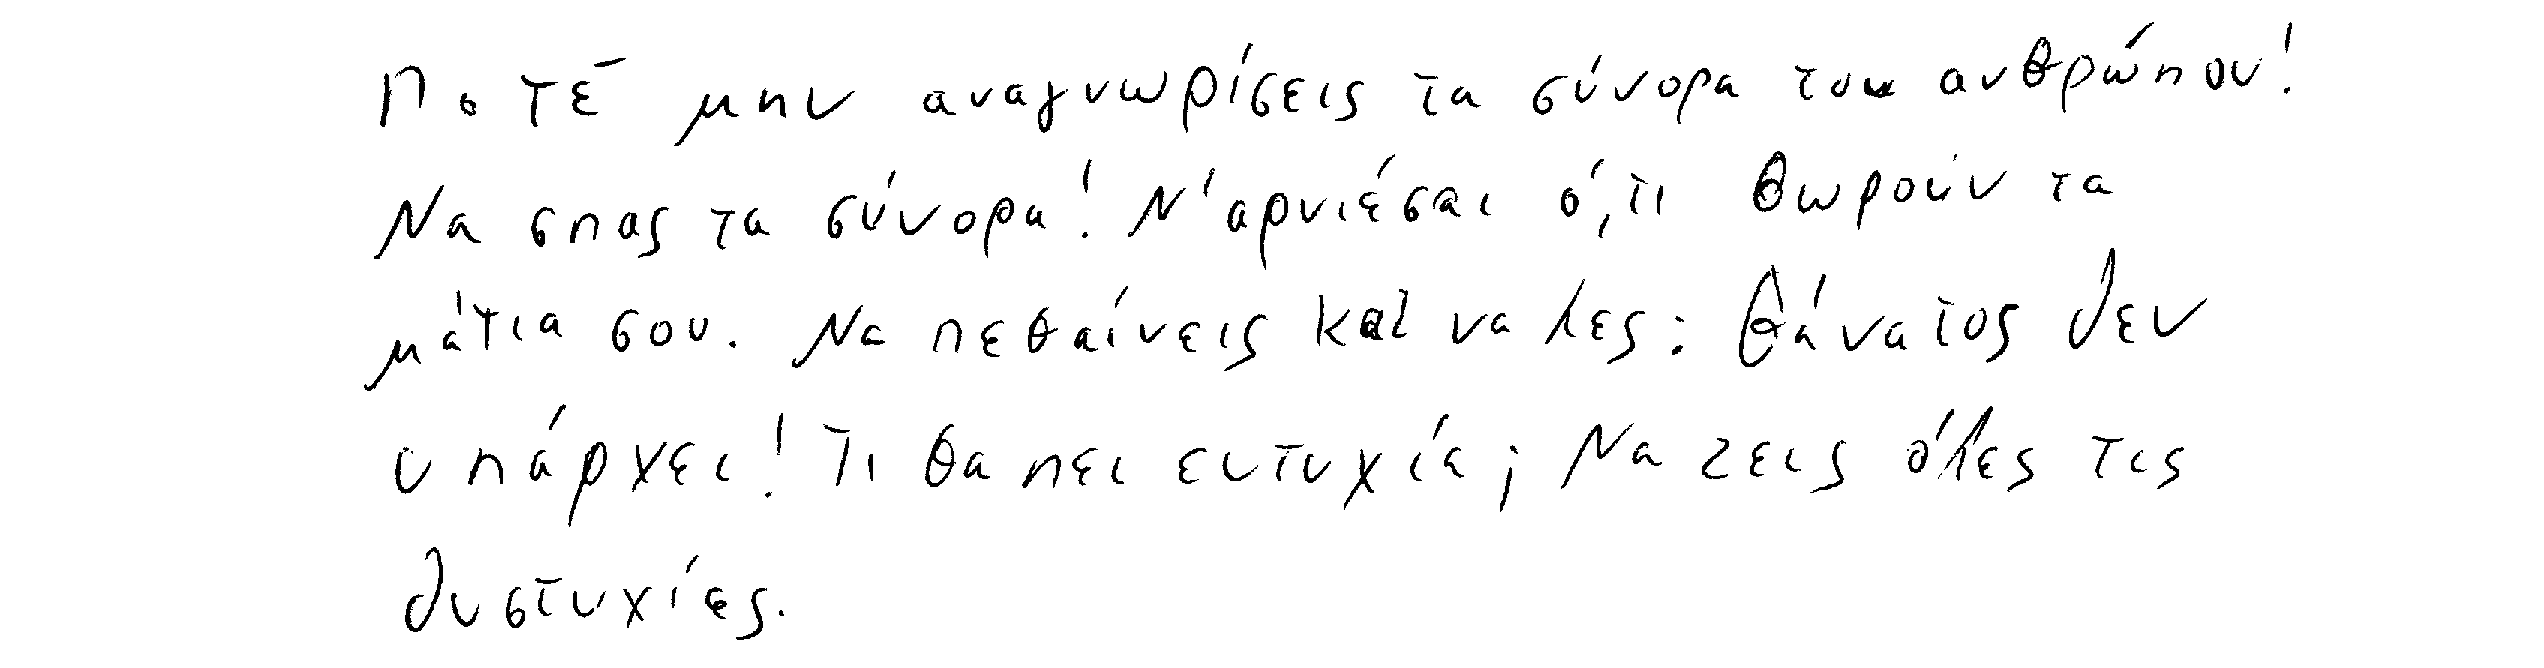 Ποτέ μην αναγνωρίσεις τα σύνορα του ανθρώπου!
Να σπας τα σύνορα! Ν'αρνιέσαι ό,τι θωρούν τα
μάτια σου. Να πεθαίνεις και να λες: Θάνατος δεν
υπάρχει! Τι θα πει ευτυχία; Να ζεις όλες τις
δυστυχίες.